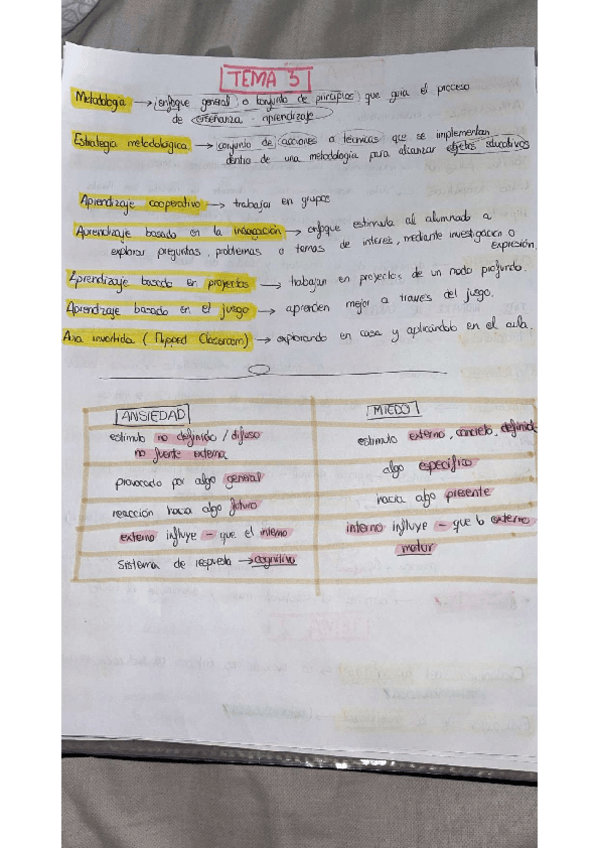 TEMA 3
Metodología → enfoque general o conjunto de principios que guía el proceso
de enseñanza - aprendizaje
Estrategia metodológica → conjunto de acciones o técnicas que se implementan
dentro de una metodología para alcanzar objetivos educativos
Aprendizaje cooperativo → trabajar en grupos
Aprendizaje basado en la indagación → enfoque estimula al alumnado a
explorar preguntas, problemas o temas de interés, mediante investigación o
expresión
Aprendizaje basado en proyectos → trabajan en proyectos de un modo profundo.
Aprendizaje basado en el juego → aprenden mejor a través del juego.
Aula invertida (Flipped Classroom) → explorando en casa y aplicándolo en el aula.
ANSIEDAD
MIEDO
estimulo no definido / difuso
no fuente externa
estimulo externo, concreto, definido
provocado por algo general
algo específico
reacción hacia algo futuro
hacia algo presente
externo influye - que el interno
interno influye - que lo externo
Sistema de respuesta → cognitivo
motor